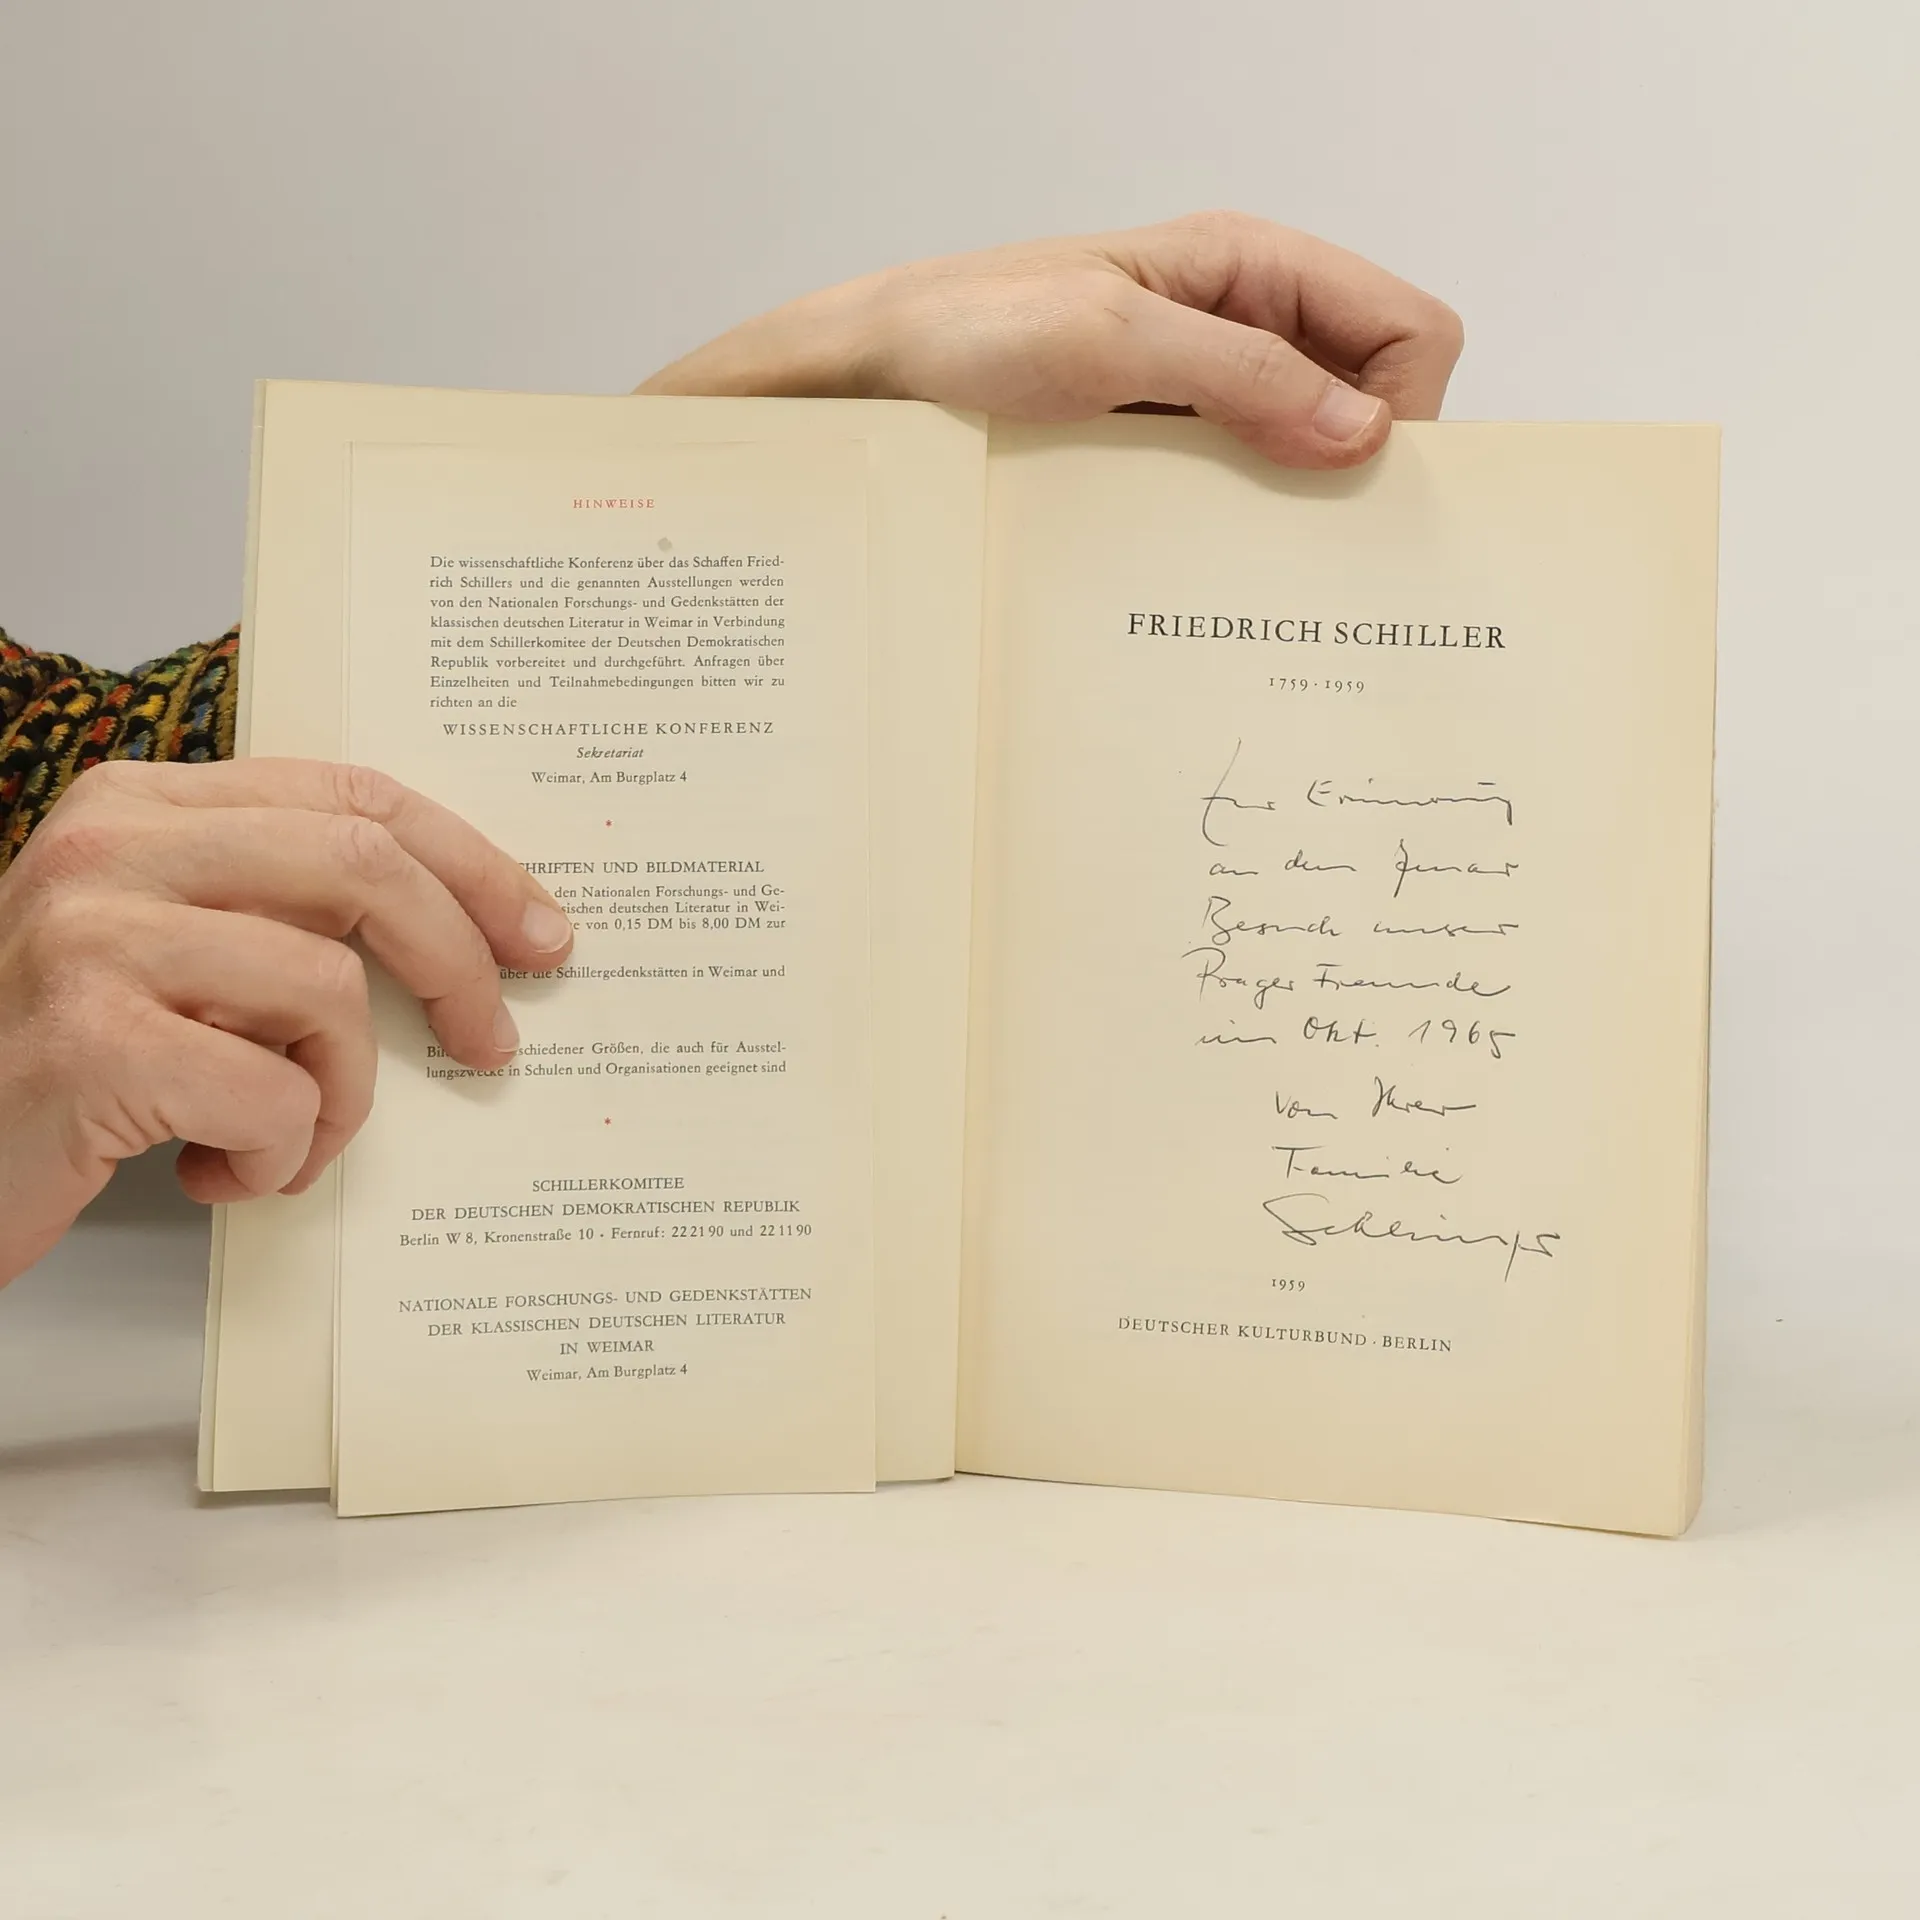 HINWEISE
Die wissenschaftliche Konferenz über das Schaffen Fried-
rich Schillers und die genannten Ausstellungen werden
von den Nationalen Forschungs- und Gedenkstätten der
klassischen deutschen Literatur in Weimar in Verbindung
mit dem Schillerkomitee der Deutschen Demokratischen
Republik vorbereitet und durchgeführt. Anfragen über
Einzelheiten und Teilnahmebedingungen bitten wir zu
richten an die
WISSENSCHAFTLICHE KONFERENZ
Sekretariat
Weimar, Am Burgplatz 4
*
UND BILDMATERIAL
den Nationalen Forschungs- und Ge-
deutschen Literatur in Wei-
von 0,15 DM bis 8,00 DM zur
über die Schillergedenkstätten in Weimar und
Größen, die auch für Ausstel-
lungszwecke in Schulen und Organisationen geeignet sind
*
SCHILLERKOMITEE
DER DEUTSCHEN DEMOKRATISCHEN REPUBLIK
Berlin W 8, Kronenstraße 10 • Fernruf: 22 21 90 und 22 11 90
NATIONALE FORSCHUNGS- UND GEDENKSTÄTTEN
DER KLASSISCHEN DEUTSCHEN LITERATUR
IN WEIMAR
Weimar, Am Burgplatz 4
FRIEDRICH SCHILLER
1759 · 1959
Zur Erinnerung
an den Jenaer
Besuch unserer
Prager Freunde
im Okt. 1965
von Ihrer
Familie
1959
DEUTSCHER KULTURBUND · BERLIN